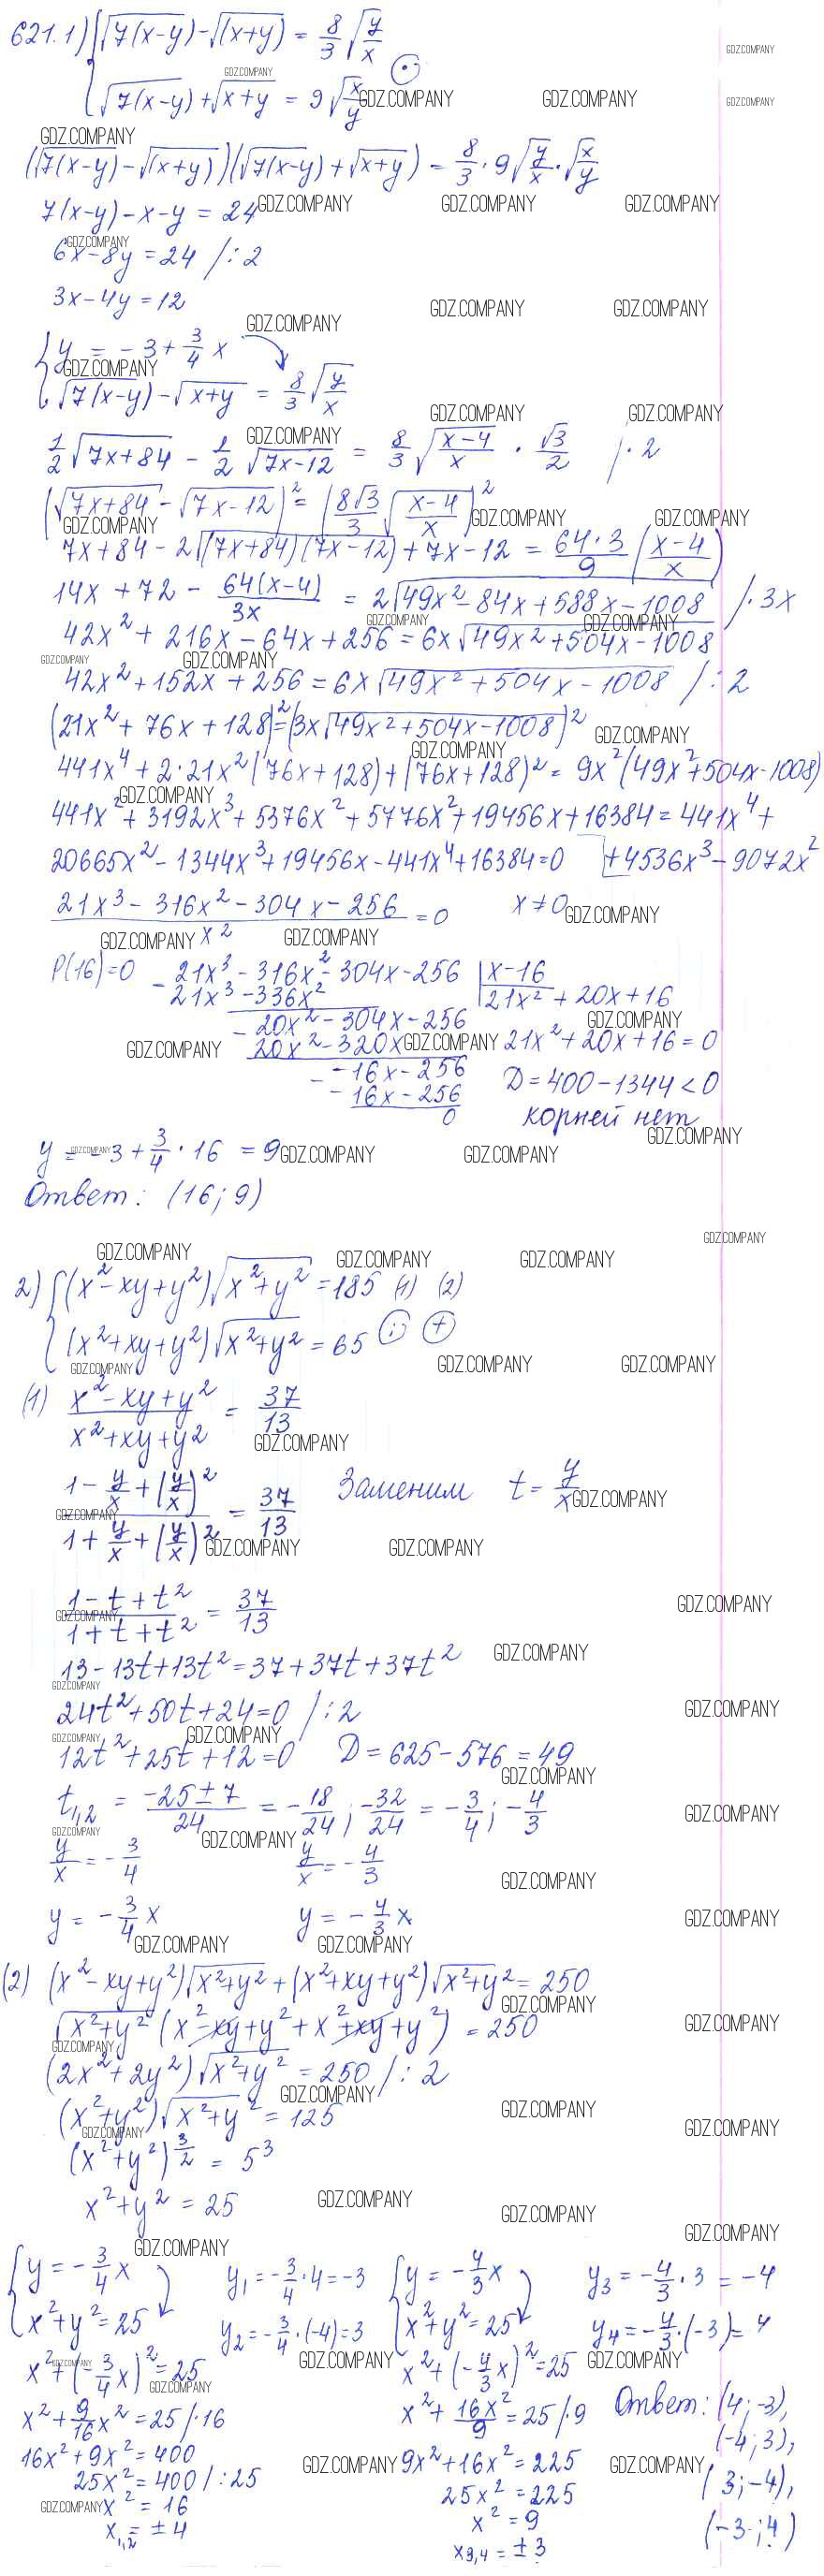 621.1) { √(7(x-y)) - √(x+y) = 8/3 √(y/x)
√(7(x-y)) + √(x+y) = 9 √(x/y) ⊙
(√(7(x-y)) - √(x+y))(√(7(x-y)) + √(x+y)) = 8/3 · 9 √(y/x) · √(x/y)
7(x-y) - x - y = 24
6x - 8y = 24 /: 2
3x - 4y = 12
{ y = -3 + 3/4 x
√(7(x-y)) - √(x+y) = 8/3 √(y/x)
1/2 √(7x+84) - 1/2 √(7x-12) = 8/3 √((x-4)/x) · √3/2 /· 2
(√(7x+84) - √(7x-12))² = (8√3/3 √((x-4)/x))²
7x + 84 - 2√((7x+84)(7x-12)) + 7x - 12 = 64·3/9 ((x-4)/x)
14x + 72 - 64(x-4)/3x = 2√(49x² - 84x + 588x - 1008) /· 3x
42x² + 216x - 64x + 256 = 6x √(49x² + 504x - 1008)
42x² + 152x + 256 = 6x √(49x² + 504x - 1008) /: 2
(21x² + 76x + 128)² = (3x √(49x² + 504x - 1008))²
441x⁴ + 2·21x²(76x + 128) + (76x + 128)² = 9x²(49x² + 504x - 1008)
441x² + 3192x³ + 5376x² + 5776x² + 19456x + 16384 = 441x⁴ +
+ 4536x³ - 9072x²
20665x² - 1344x³ + 19456x - 441x⁴ + 16384 = 0
(21x³ - 316x² - 304x - 256)/x² = 0 x ≠ 0
P(16) = 0 - 21x³ - 316x² - 304x - 256 | x - 16
21x³ - 336x² 21x² + 20x + 16
- 20x² - 304x - 256
20x² - 320x 21x² + 20x + 16 = 0
- -16x - 256 D = 400 - 1344 < 0
-16x - 256 корней нет
0
y = -3 + 3/4 · 16 = 9
Ответ: (16; 9)
2) { (x² - xy + y²)√(x² + y²) = 185 (1) (2)
(x² + xy + y²)√(x² + y²) = 65 (:) (+)
(1) (x² - xy + y²)/(x² + xy + y²) = 37/13
(1 - y/x + (y/x)²)/(1 + y/x + (y/x)²) = 37/13 Заменим t = y/x
(1 - t + t²)/(1 + t + t²) = 37/13
13 - 13t + 13t² = 37 + 37t + 37t²
24t² + 50t + 24 = 0 /: 2
12t² + 25t + 12 = 0 D = 625 - 576 = 49
t₁,₂ = (-25 ± 7)/24 = -18/24; -32/24 = -3/4; -4/3
y/x = -3/4 y/x = -4/3
y = -3/4 x y = -4/3 x
(2) (x² - xy + y²)√(x² + y²) + (x² + xy + y²)√(x² + y²) = 250
√(x² + y²) (x² - xy + y² + x² + xy + y²) = 250
(2x² + 2y²)√(x² + y²) = 250 /: 2
(x² + y²)√(x² + y²) = 125
(x² + y²)^(3/2) = 5³
x² + y² = 25
{ y = -3/4 x y₁ = -3/4 · 4 = -3 { y = -4/3 x y₃ = -4/3 · 3 = -4
x² + y² = 25 y₂ = -3/4 · (-4) = 3 x² + y² = 25 y₄ = -4/3 · (-3) = 4
x² + (-3/4 x)² = 25 x² + (-4/3 x)² = 25
x² + 9/16 x² = 25 /· 16 x² + 16x²/9 = 25 /· 9 Ответ: (4; -3),
16x² + 9x² = 400 9x² + 16x² = 225 (-4; 3),
25x² = 400 /: 25 25x² = 225 (3; -4),
x² = 16 x² = 9 (-3; 4)
x₁,₂ = ±4 x₃,₄ = ±3
GDZ.COMPANY